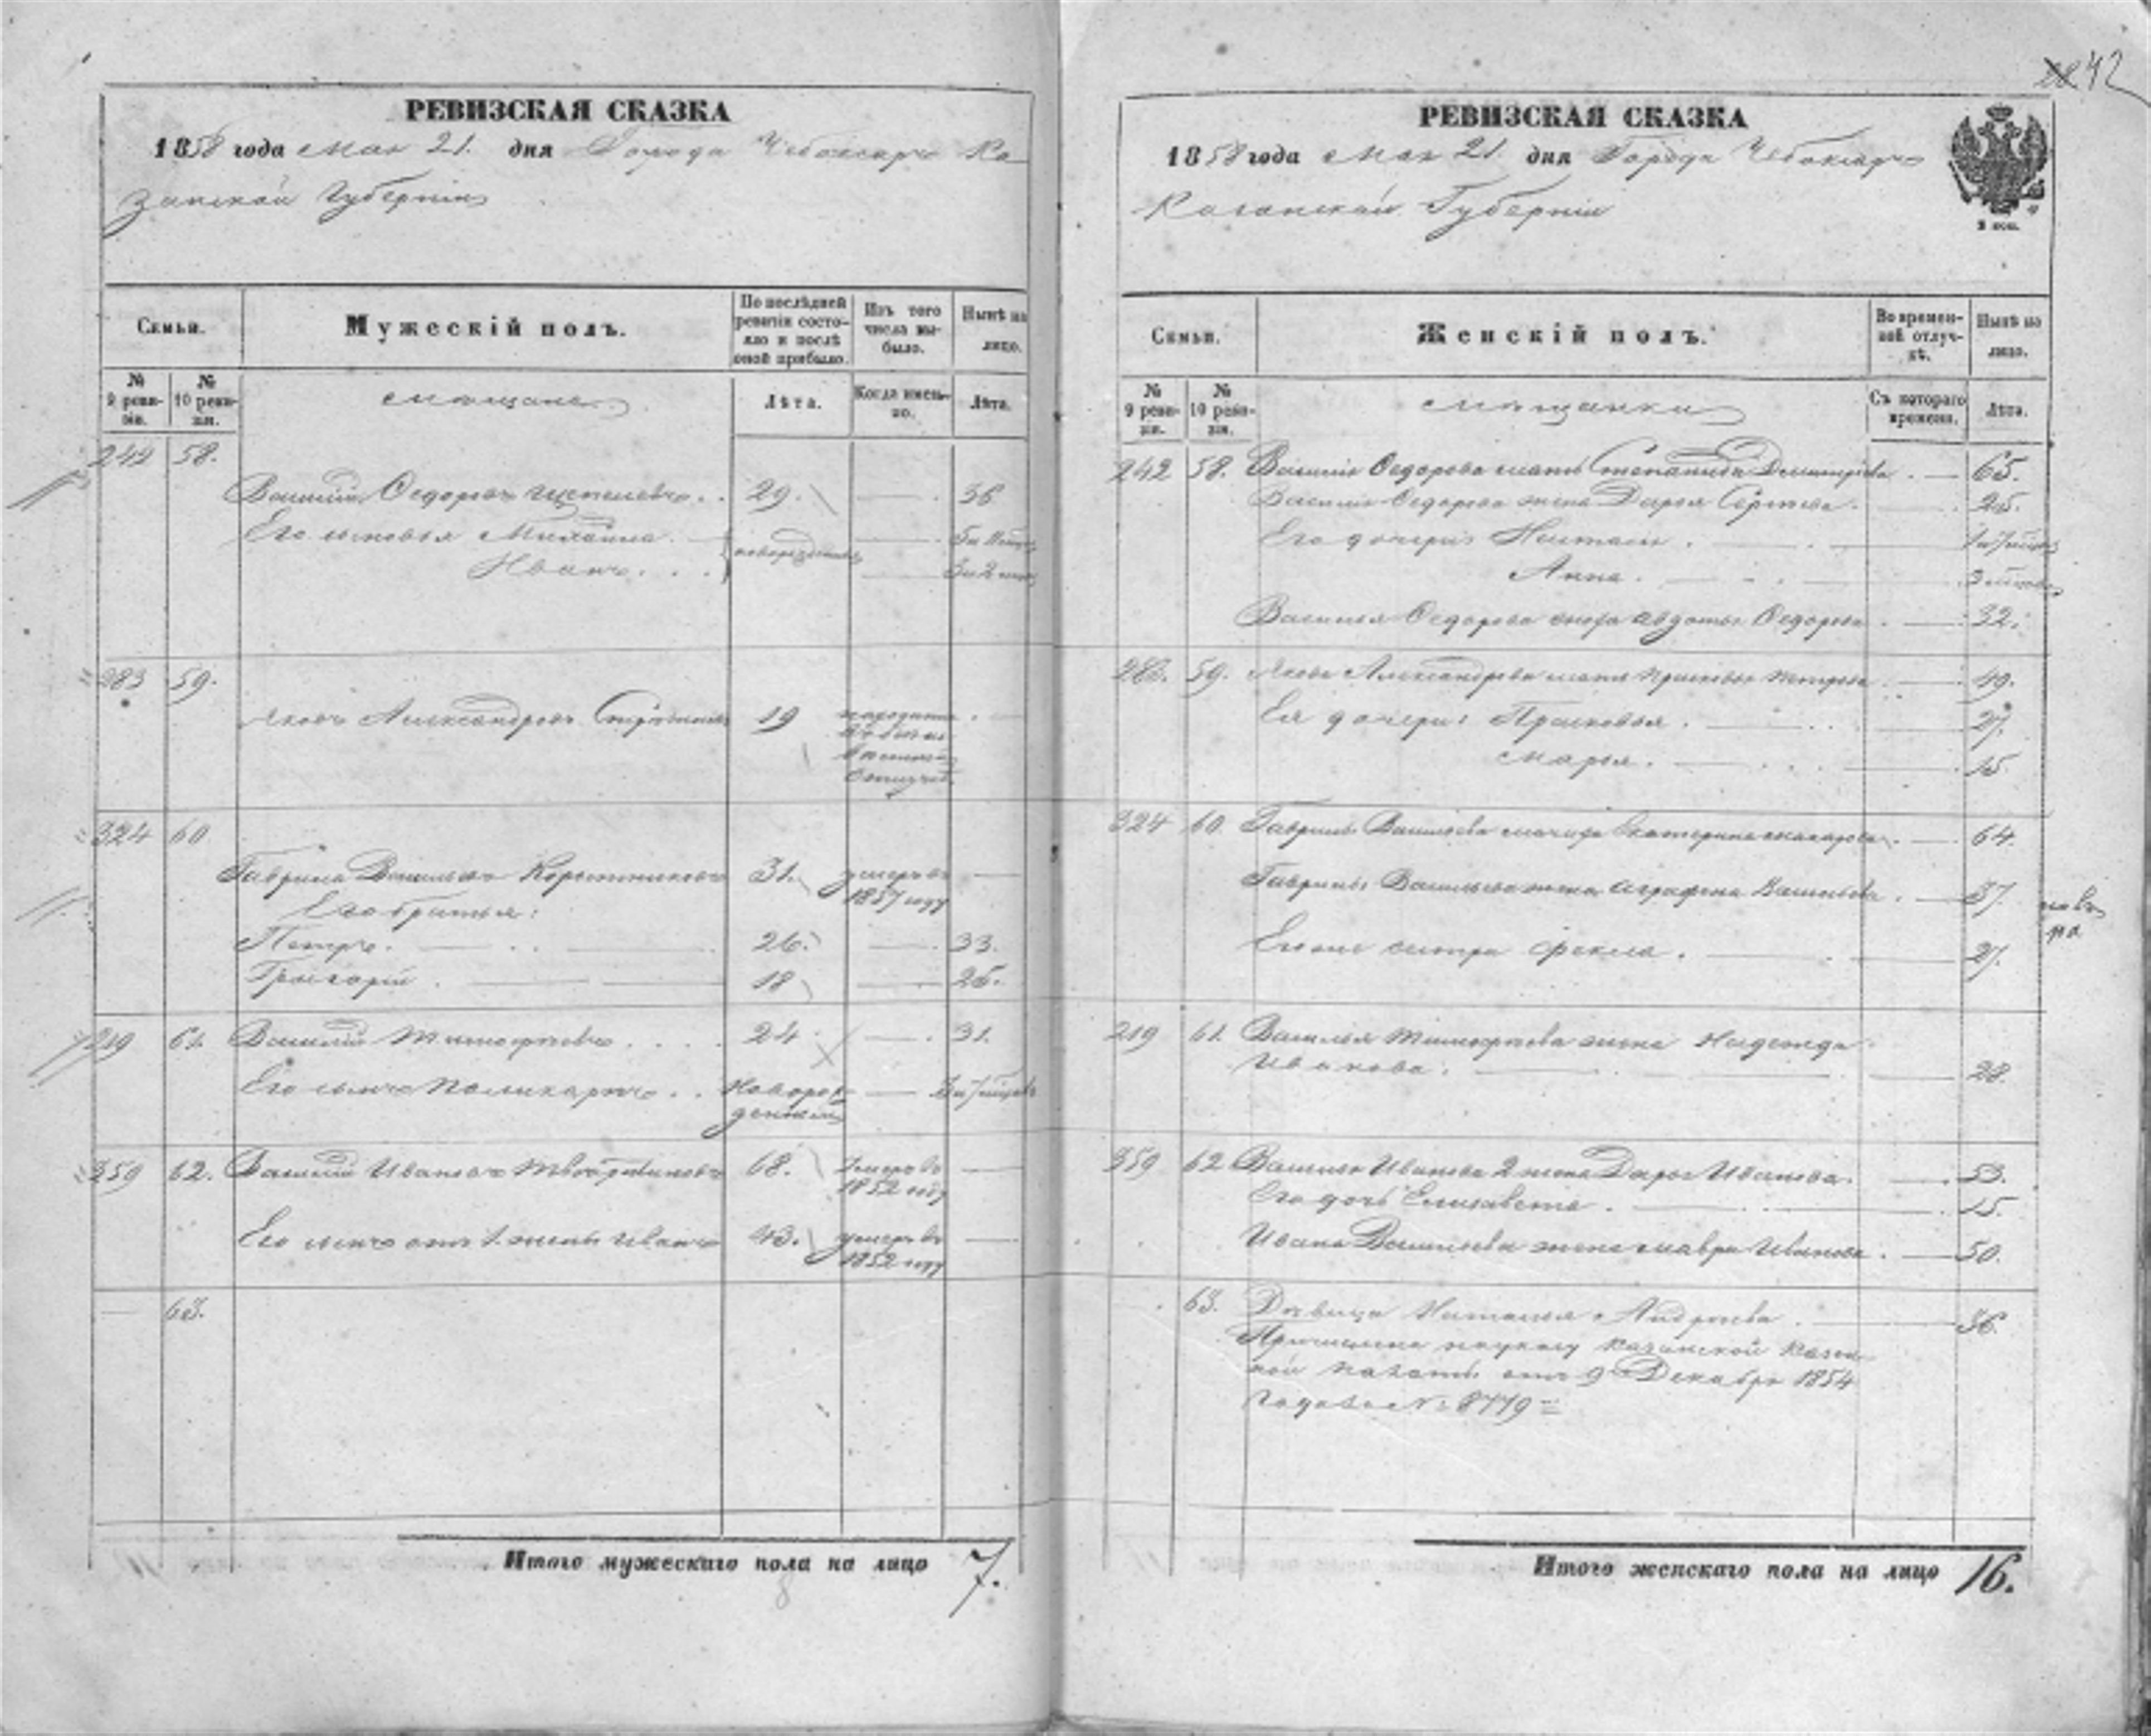 42
РЕВИЗСКАЯ СКАЗКА
1858 года мая 21. дня Города Чебоксаръ Ка
занской Губерніи
Семьи.
Мужескій полъ.
По послѣдней ревизіи состояло и послѣ оной прибыло.
Изъ того числа выбыло.
Нынѣ на лицо.
№ 9 ревизіи.
№ 10 ревизіи.
мѣщане
Лѣта.
Когда именно.
Лѣта.
242 58.
Василій Ѳедоровъ 29. 36
Его сыновья Михайла
Иванъ
новорожденные
283 59.
Яковъ Александровъ 19
324 60
Гаврила Васильевъ Коротниковъ 31. умеръ въ 1857 году
Его братья:
Петръ. 26. 33.
Григорій 18 25.
219 61. Василій Тимофѣевъ 24 31.
Его сынъ Поликарпъ новорожденный
359 62. Василій Ивановъ 68. умеръ въ 1852 году
Его сынъ отъ 1. жены Иванъ 43. умеръ въ 1852 году
63.
Итого мужескаго пола на лицо 7.
РЕВИЗСКАЯ СКАЗКА
1858 года мая 21. дня Города Чебоксаръ
Казанской Губерніи
Семьи.
Женскій полъ.
Во временной отлучкѣ.
Нынѣ на лицо.
№ 9 ревизіи.
№ 10 ревизіи.
мѣщанки
Съ котораго времени.
Лѣта.
242 58. Василія Ѳедорова мать Степанида Дмитріева 65.
Василія Ѳедорова жена Дарья Сергѣева 25.
Его дочери: Наталья
Анна.
Василья Ѳедорова сноха Авдотья Ѳедорова 32.
283. 59. Якова Александрова мать 49.
Ея дочери: Прасковья 27.
Марья. 15.
324 60. Гаврилы Васильева мачиха Екатерина Макарова 64.
Гаврилы Васильева жена Аграфена Васильева 37.
Его же сестра Фекла. 27.
219 61. Василья Тимофѣева жена Надежда
Иванова. 28.
359 62 Василья Иванова 2 жена Дарья Иванова. 53.
Его дочь Елизавета 15.
Ивана Васильева жена Мавра Иванова. 50.
63. Дѣвица Наталья Андреева 36.
Причислена по указу Казанской Казен
ной Палаты отъ 9 Декабря 1854
года за № 8779
Итого женскаго пола на лицо 16.